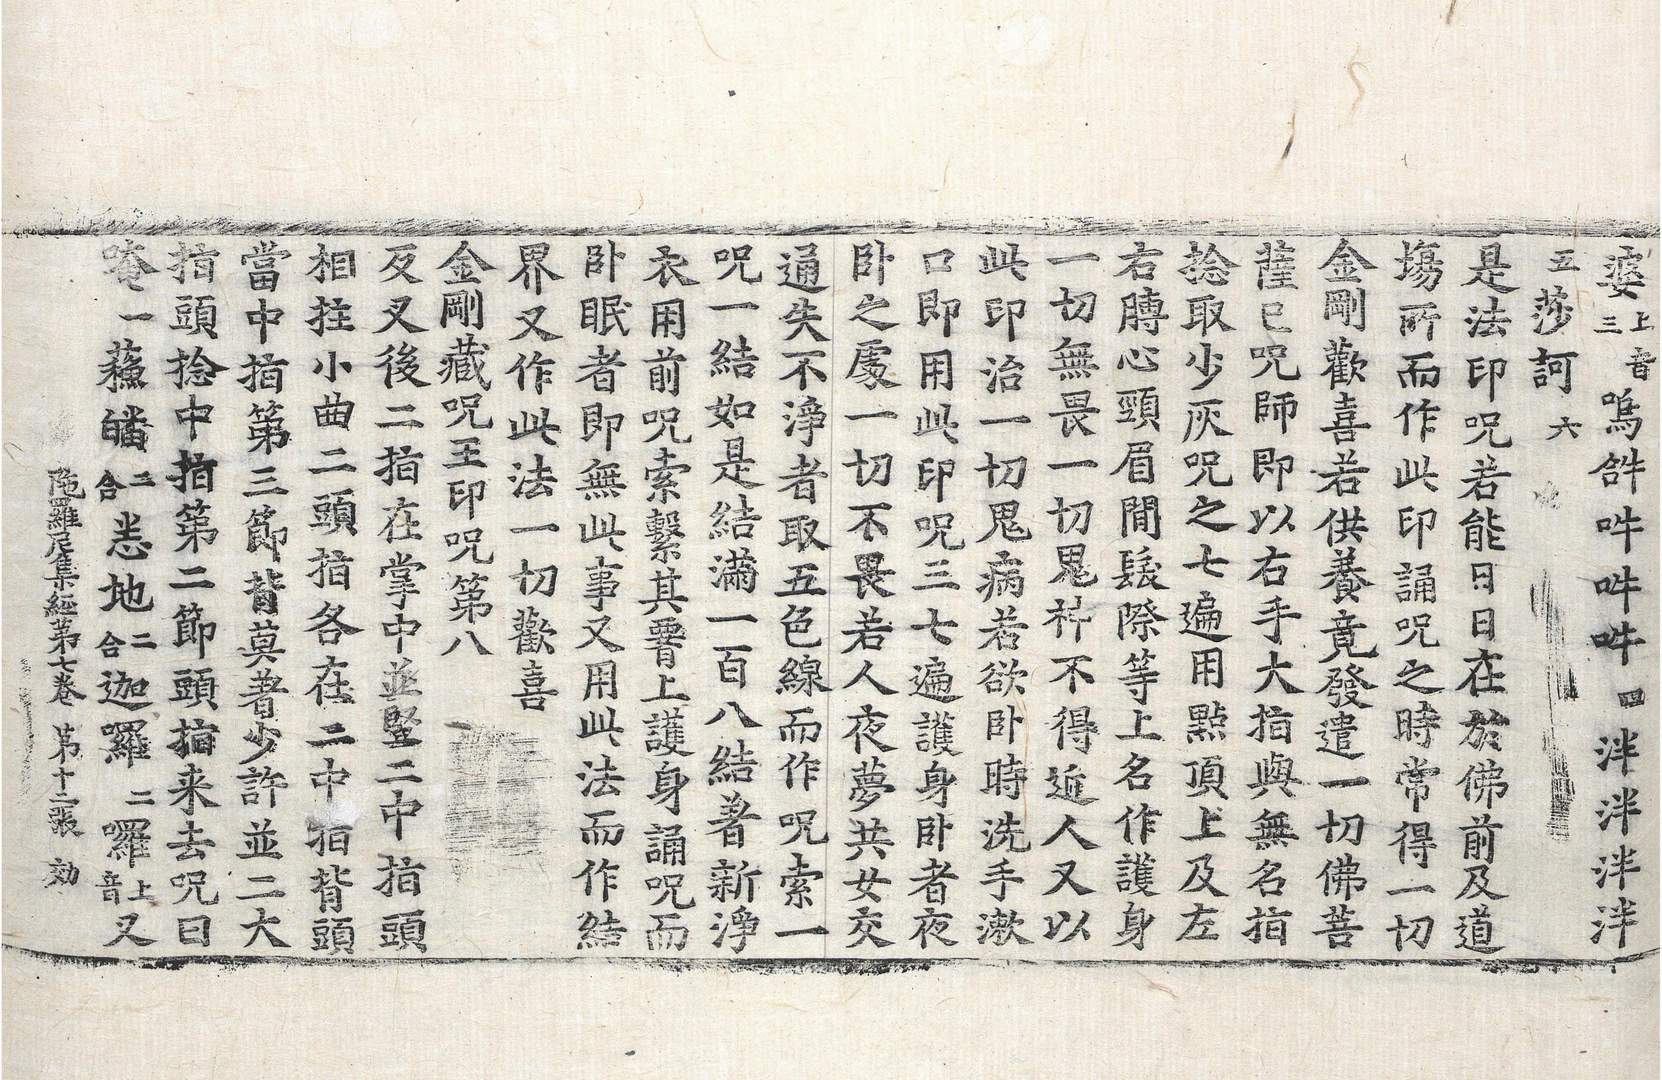 婆上音三嗚𤙖吽吽吽四泮泮泮泮
五莎訶六
是法印咒若能日日在於佛前及道
塲所而作此印誦咒之時常得一切
金剛歡喜若供養竟發遣一切佛菩
薩已咒師即以右手大指與無名指
捻取少灰咒之七遍用點頂上及左
右膊心頸眉間髮際等上名作護身
一切無畏一切鬼神不得近人又以
此印治一切鬼病若欲卧時洗手漱
口即用此印咒三七遍護身卧者夜
卧之處一切不畏若人夜夢共女交
通失不淨者取五色線而作咒索一
咒一結如是結滿一百八結著新淨
衣用前咒索繫其腰上護身誦咒而
卧眠者即無此事又用此法而作結
界又作此法一切歡喜
金剛藏咒王印咒第八
反叉後二指在掌中並竪二中指頭
相拄小曲二頭指各在二中指背頭
當中指第三節背莫著少許並二大
指頭捻中指第二節頭指来去咒曰
唵一蘇皤二合悉地二合迦囉二囉上音又
陁羅尼集經第七卷 第十二張 効